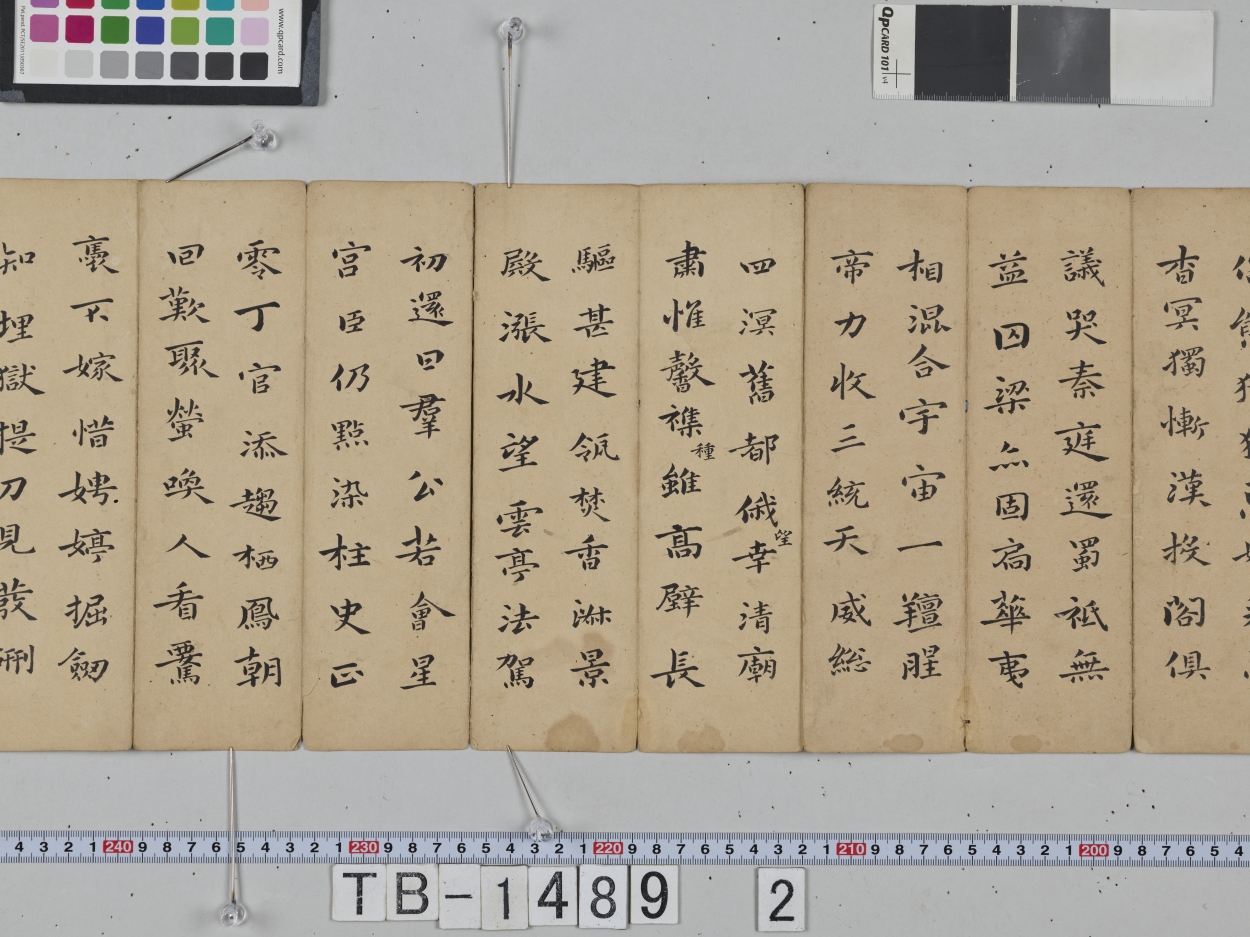 杳冥獨慚漢投閣俱
議哭秦庭還蜀祇無
益囚梁亦固扃華夷
相混合宇宙一羶腥
帝力收三統天威總
四溟舊都俄幸清廟
望
肅惟馨襍雖高壁長
種
驅甚建瓴焚香淋景
殿漲水望雲亭法駕
初還日群公若會星
宮臣仍點染柱史正
零丁官添趨栖鳳朝
回歎聚螢喚人看
裊不嫁惜娉婷掘劒
知埋獄提刀見發硎
www.qpcard.com
QPCARD 101 v4
4 3 2 1 240 9 8 7 6 5 4 3 2 1 230 9 8 7 6 5 4 3 2 1 220 9 8 7 6 5 4 3 2 1 210 9 8 7 6 5 4 3 2 1 200 9 8 7 6 5 4
TB-1489 2